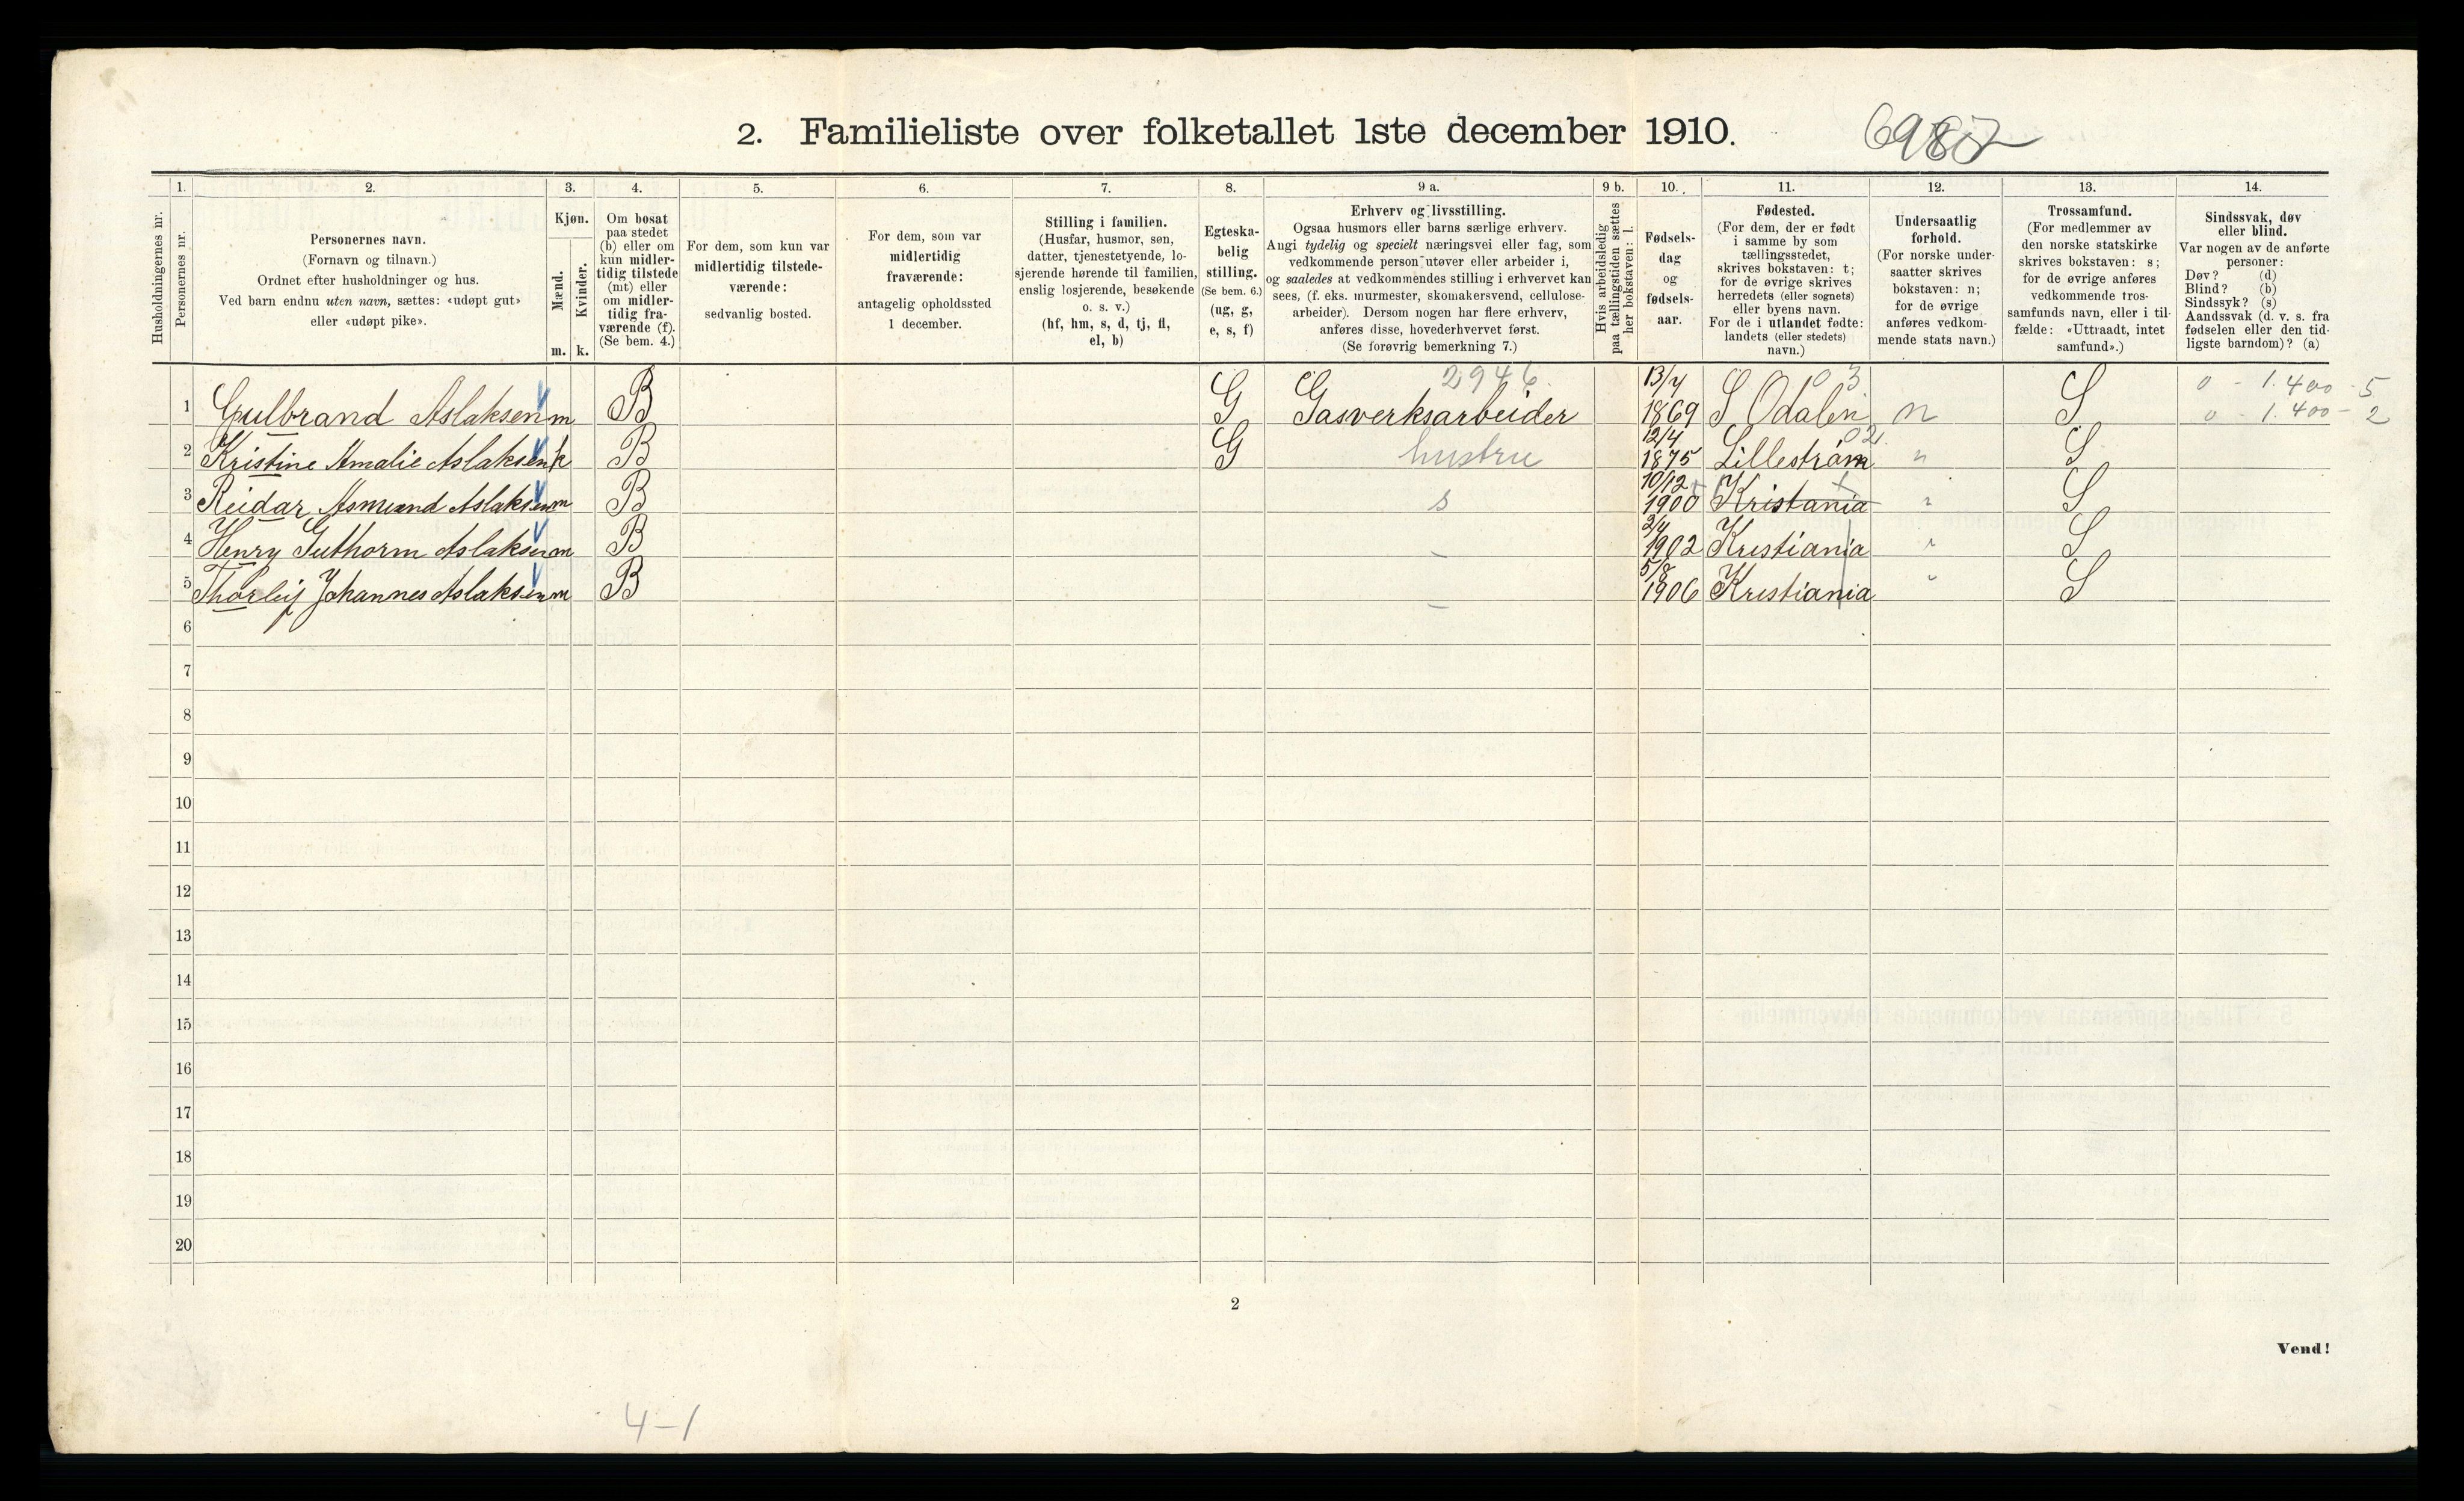 2. Familieliste over folketallet 1ste december 1910.
1. 2. 3. 4. 5. 6. 7. 8. 9 a. 9 b. 10. 11. 12. 13. 14.
Husholdningernes nr.
Personernes nr.
Personernes navn.
(Fornavn og tilnavn.)
Ordnet efter husholdninger og hus.
Ved barn endnu uten navn, sættes: «udøpt gut»
eller «udøpt pike».
Kjøn.
Mænd.
Kvinder.
m. k.
Om bosat
paa stedet
(b) eller om
kun midler-
tidig tilstede
(mt) eller
om midler-
tidig fra-
værende (f).
(Se bem. 4.)
For dem, som kun var
midlertidig tilstede-
værende:
sedvanlig bosted.
For dem, som var
midlertidig
fraværende:
antagelig opholdssted
1 december.
Stilling i familien.
(Husfar, husmor, søn,
datter, tjenestetyende, lo-
sjerende hørende til familien,
enslig losjerende, besøkende
o. s. v.)
(hf, hm, s, d, tj, fl,
el, b)
Egteska-
belig
stilling.
(Se bem. 6.)
(ug, g,
e, s, f)
Erhverv og livsstilling.
Ogsaa husmors eller barns særlige erhverv.
Angi tydelig og specielt næringsvei eller fag, som
vedkommende person utøver eller arbeider i,
og saaledes at vedkommendes stilling i erhvervet kan
sees, (f. eks. murmester, skomakersvend, cellulose-
arbeider). Dersom nogen har flere erhverv,
anføres disse, hovederhvervet først.
(Se forøvrig bemerkning 7.)
Hvis arbeidsledig
paa tællingstiden sættes
her bokstaven: l.
Fødsels-
dag
og
fødsels-
aar.
Fødested.
(For dem, der er født
i samme by som
tællingsstedet,
skrives bokstaven: t;
for de øvrige skrives
herredets (eller sognets)
eller byens navn.
For de i utlandet fødte:
landets (eller stedets)
navn.)
Undersaatlig
forhold.
(For norske under-
saatter skrives
bokstaven: n;
for de øvrige
anføres vedkom-
mende stats navn.)
Trossamfund.
(For medlemmer av
den norske statskirke
skrives bokstaven: s;
for de øvrige anføres
vedkommende tros-
samfunds navn, eller i til-
fælde: «Uttraadt, intet
samfund».)
Sindssvak, døv
eller blind.
Var nogen av de anførte
personer:
Døv? (d)
Blind? (b)
Sindssyk? (s)
Aandssvak (d. v. s. fra
fødselen eller den tid-
ligste barndom)? (a)
2946. 13/4 03 0 - 1.400 - 5
1 Gulbrand Aslaksen m B G Gasverksarbeider 1869 S Odalen n S 0 - 1.400 - 2
12/4 02
2 Kristine Amalie Aslaksen k B G hustru 1875 Lillestrøm " S
10/12
3 Reidar Asmund Aslaksen m B s 1900 Kristania " S
4 Henry Guthorm Aslaksen m B – 1902 Kristiania " S
5/8
5 Thorleif Johannes Aslaksen m B – 1906 Kristiania " S
6
7
8
9
10
11
12
13
14
15
16
17
18
19
20
2
Vend!
4-1